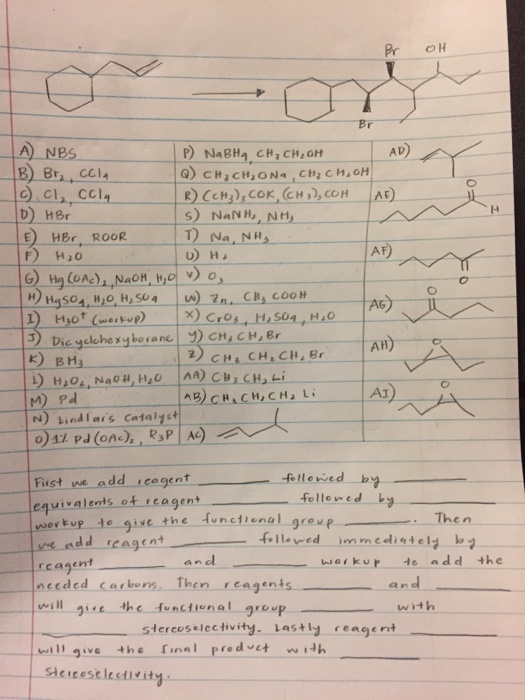 Br OH
Br
A) NBS
B) Br2, CCl4
C) Cl2, CCl4
D) HBr
E) HBr, ROOR
F) H2O
G) Hg(OAc)2, NaOH, H2O
H) HgSO4, H2O, H2SO4
I) H3O+ (workup)
J) Dicyclohexyborane
K) BH3
L) H2O2, NaOH, H2O
M) Pd
N) Lindlar's Catalyst
O) 1% Pd(OAc)2, R3P
P) NaBH4, CH3CH2OH
Q) CH3CH2ONa, CH3CH2OH
R) (CH3)3COK, (CH3)3COH
S) NaNH2, NH3
T) Na, NH3
U) H2
V) O3
W) Zn, CH3COOH
X) CrO3, H2SO4, H2O
Y) CH3CH2Br
Z) CH3CH2CH2Br
AA) CH3CH2Li
AB) CH3CH2CH2Li
AC)
AD)
AE) O
H
AF)
O
AG) O
AH) O
AI) O
First we add reagent ________ followed by ________
equivalents of reagent ________ followed by ________
workup to give the functional group ________. Then
we add reagent ________ followed immediately by
reagent ________ and ________ workup to add the
needed carbons. Then reagents ________ and ________
will give the functional group ________ with
________ stereoselectivity. Lastly reagent ________
will give the final product with ________
stereoselectivity.